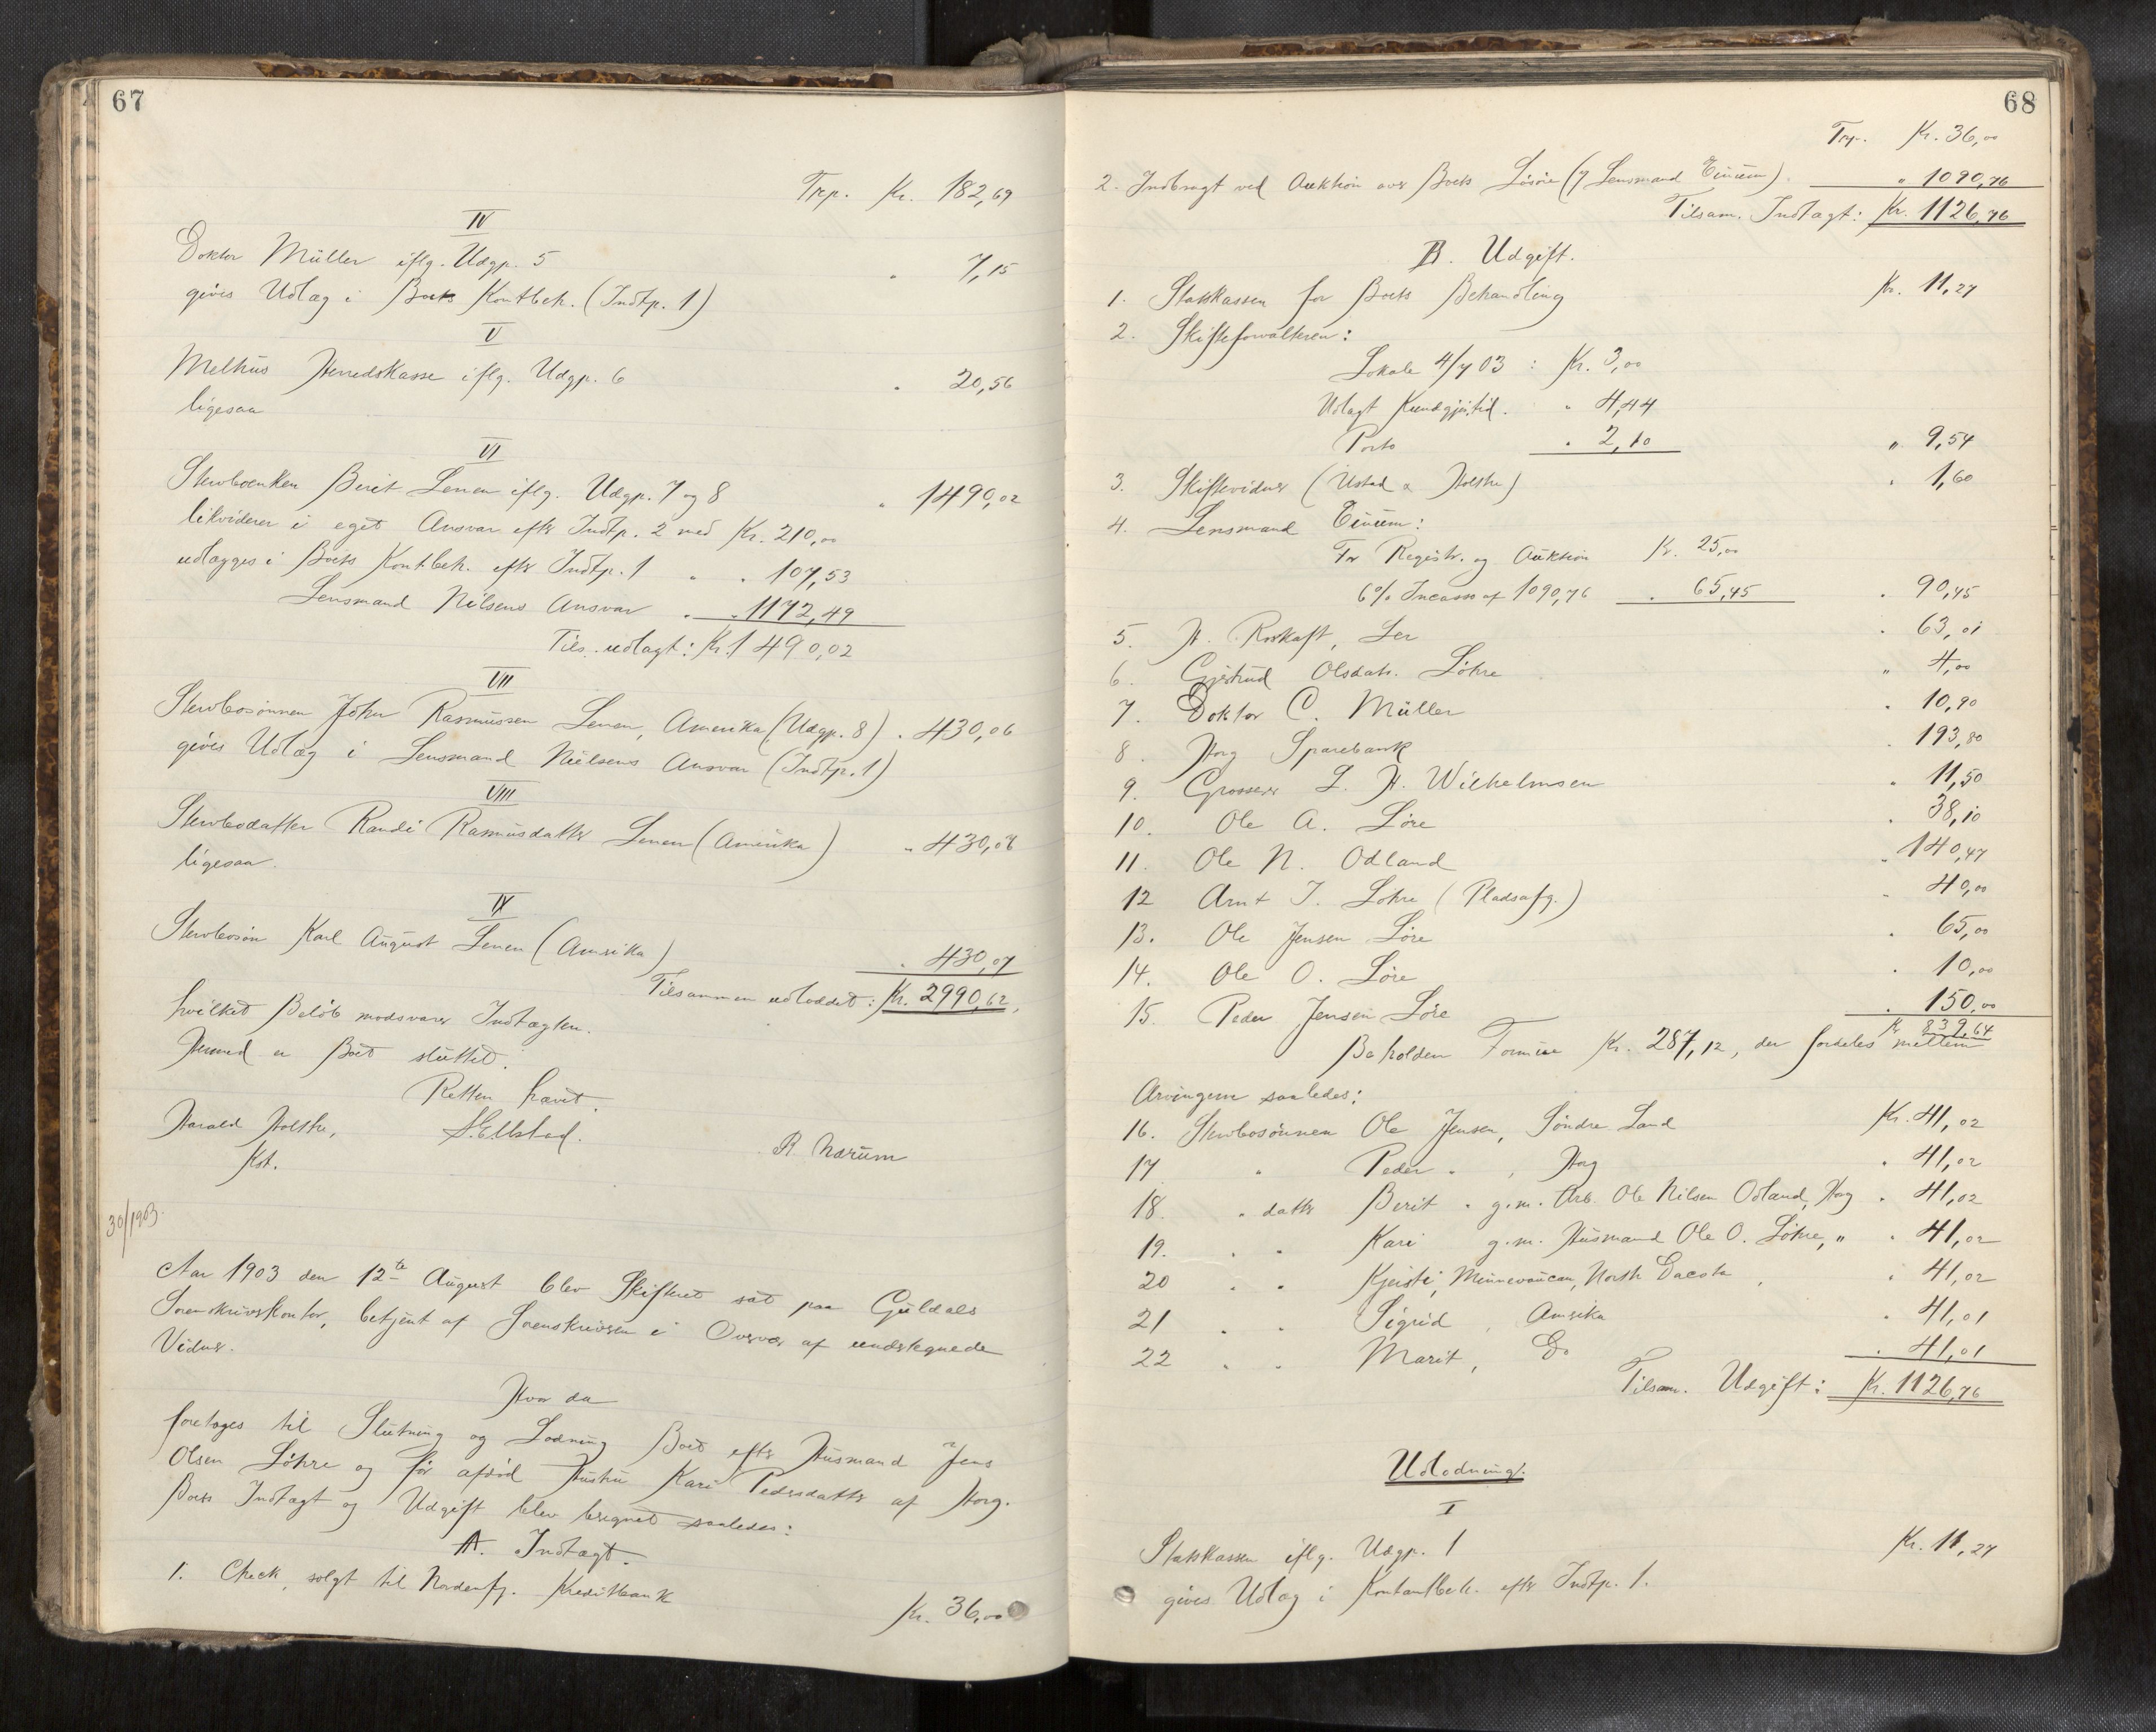 67
Trp. Kr. 182,69
IV
Doktor Müller iflg. Udgp. 5 " 7,15
gives Udlæg i Boets Kontbeh. (Indtp. 1)
V
Melhus Herredskasse iflg. Udgp. 6 " 20,56
ligesaa
VI
Stervboenken Berit Lenen iflg. Udgp. 7 og 8 " 1490,02
likviderer i eget Ansvar efter Indtp. 2 med Kr. 210,00
udlægges i Boets Kont.beh. efter Indtp. 1 " " 107,53
Lensmand Nilsens Ansvar " " 1172,49
Tils. udlagt: Kr. 1490,02
VII
Stervbosønnen John Rasmussen Lenen, Amerika (Udgp. 8) " 430,06
gives Udlæg i Lensmand Nielsens Ansvar (Indtp. 1)
VIII
Stervbodatter Randi Rasmusdatter Lenen (Amerika) " 430,07
ligesaa.
IX
Stervbosøn Karl August Lenen (Amerika) " 430,07
Tilsammen udloddet: Kr. 2990,62,
hvilket Beløb modsvarer Indtægten.
Hermed er Boet sluttet.
Retten hævet.
Harald Holthe, S. Ellstad. R Nærum
Kst.
30/1903.
Aar 1903 den 12te August blev Skifteret sat paa Guldals
Sorenskriverkontor, betjent af Sorenskriveren i Overvær af undertegnede
Vidner.
Hvor da
foretoges til Slutning og Lodning Boet efter Husmand Jens
Olsen Løhre og før afdød Hustru Kari Pedersdatter af Horg.
Boets Indtægt og Udgift blev beregnet saaledes:
A. Indtægt.
1. Check, solgt til Nordenfj. Kreditbank Kr. 36,00
68
Trp. Kr. 36,00
2. Indbragt ved Auktion over Boets Løsøre (v/ Lensmand Einum) " 1090,76
Tilsam. Indtægt: Kr. 1126,76
B. Udgift.
1. Statskassen for Boets Behandling Kr. 11,27
2. Skifteforvalteren:
Lokale 4/7 03 : Kr. 3,00
Udlagt Kundgj.tid. " 4,44
Porto " 2,10 " 9,54
3. Skiftevidner (Ustad & Holthe) " 1,60
4. Lensmand Einum:
For Registr. og Auktion Kr. 25,00
6% Incasso af 1090,76 " 65,45 " 90,45
5. H. Roskaft, Ler " 63,01
6. Gjertrud Olsdatr. Løhre " 4,00
7. Doktor C. Müller " 10,90
8. Horg Sparebank " 193,80
9. Grosserer L. H. Wilhelmsen " 11,50
10. Ole A. Løre " 38,10
11. Ole N. Odland " 140,47
12 Arnt J. Løhre (Pladsafg.) " 40,00
13. Ole Jensen Løre " 65,00
14. Ole O. Løre " 10,00
15. Peder Jensen Løre " 150,00
Kr. 839,64
Beholden Formue Kr. 287,12, der fordeles mellem
Arvingerne saaledes:
16. Stervbosønnen Ole Jensen, Søndre Land Kr. 41,02
17 " Peder " , Horg " 41,02
18. " datter Berit " g.m. Arb. Ole Nilsen Odland, Horg " 41,02
19. " " Kari g.m. Husmand Ole O. Løhre, " " 41,02
20 " " Kjersti, Minnewaucan, North Dacota, " 41,02
21 " " Sigrid, Amerika " 41,01
22 " " Marit, Do " 41,01
Tilsam. Udgift: Kr. 1126,76
Udlodning.
I
Statskassen iflg. Udgp. 1 Kr. 11,27
gives Udlæg i Kontantbeh. efter Indtp. 1.